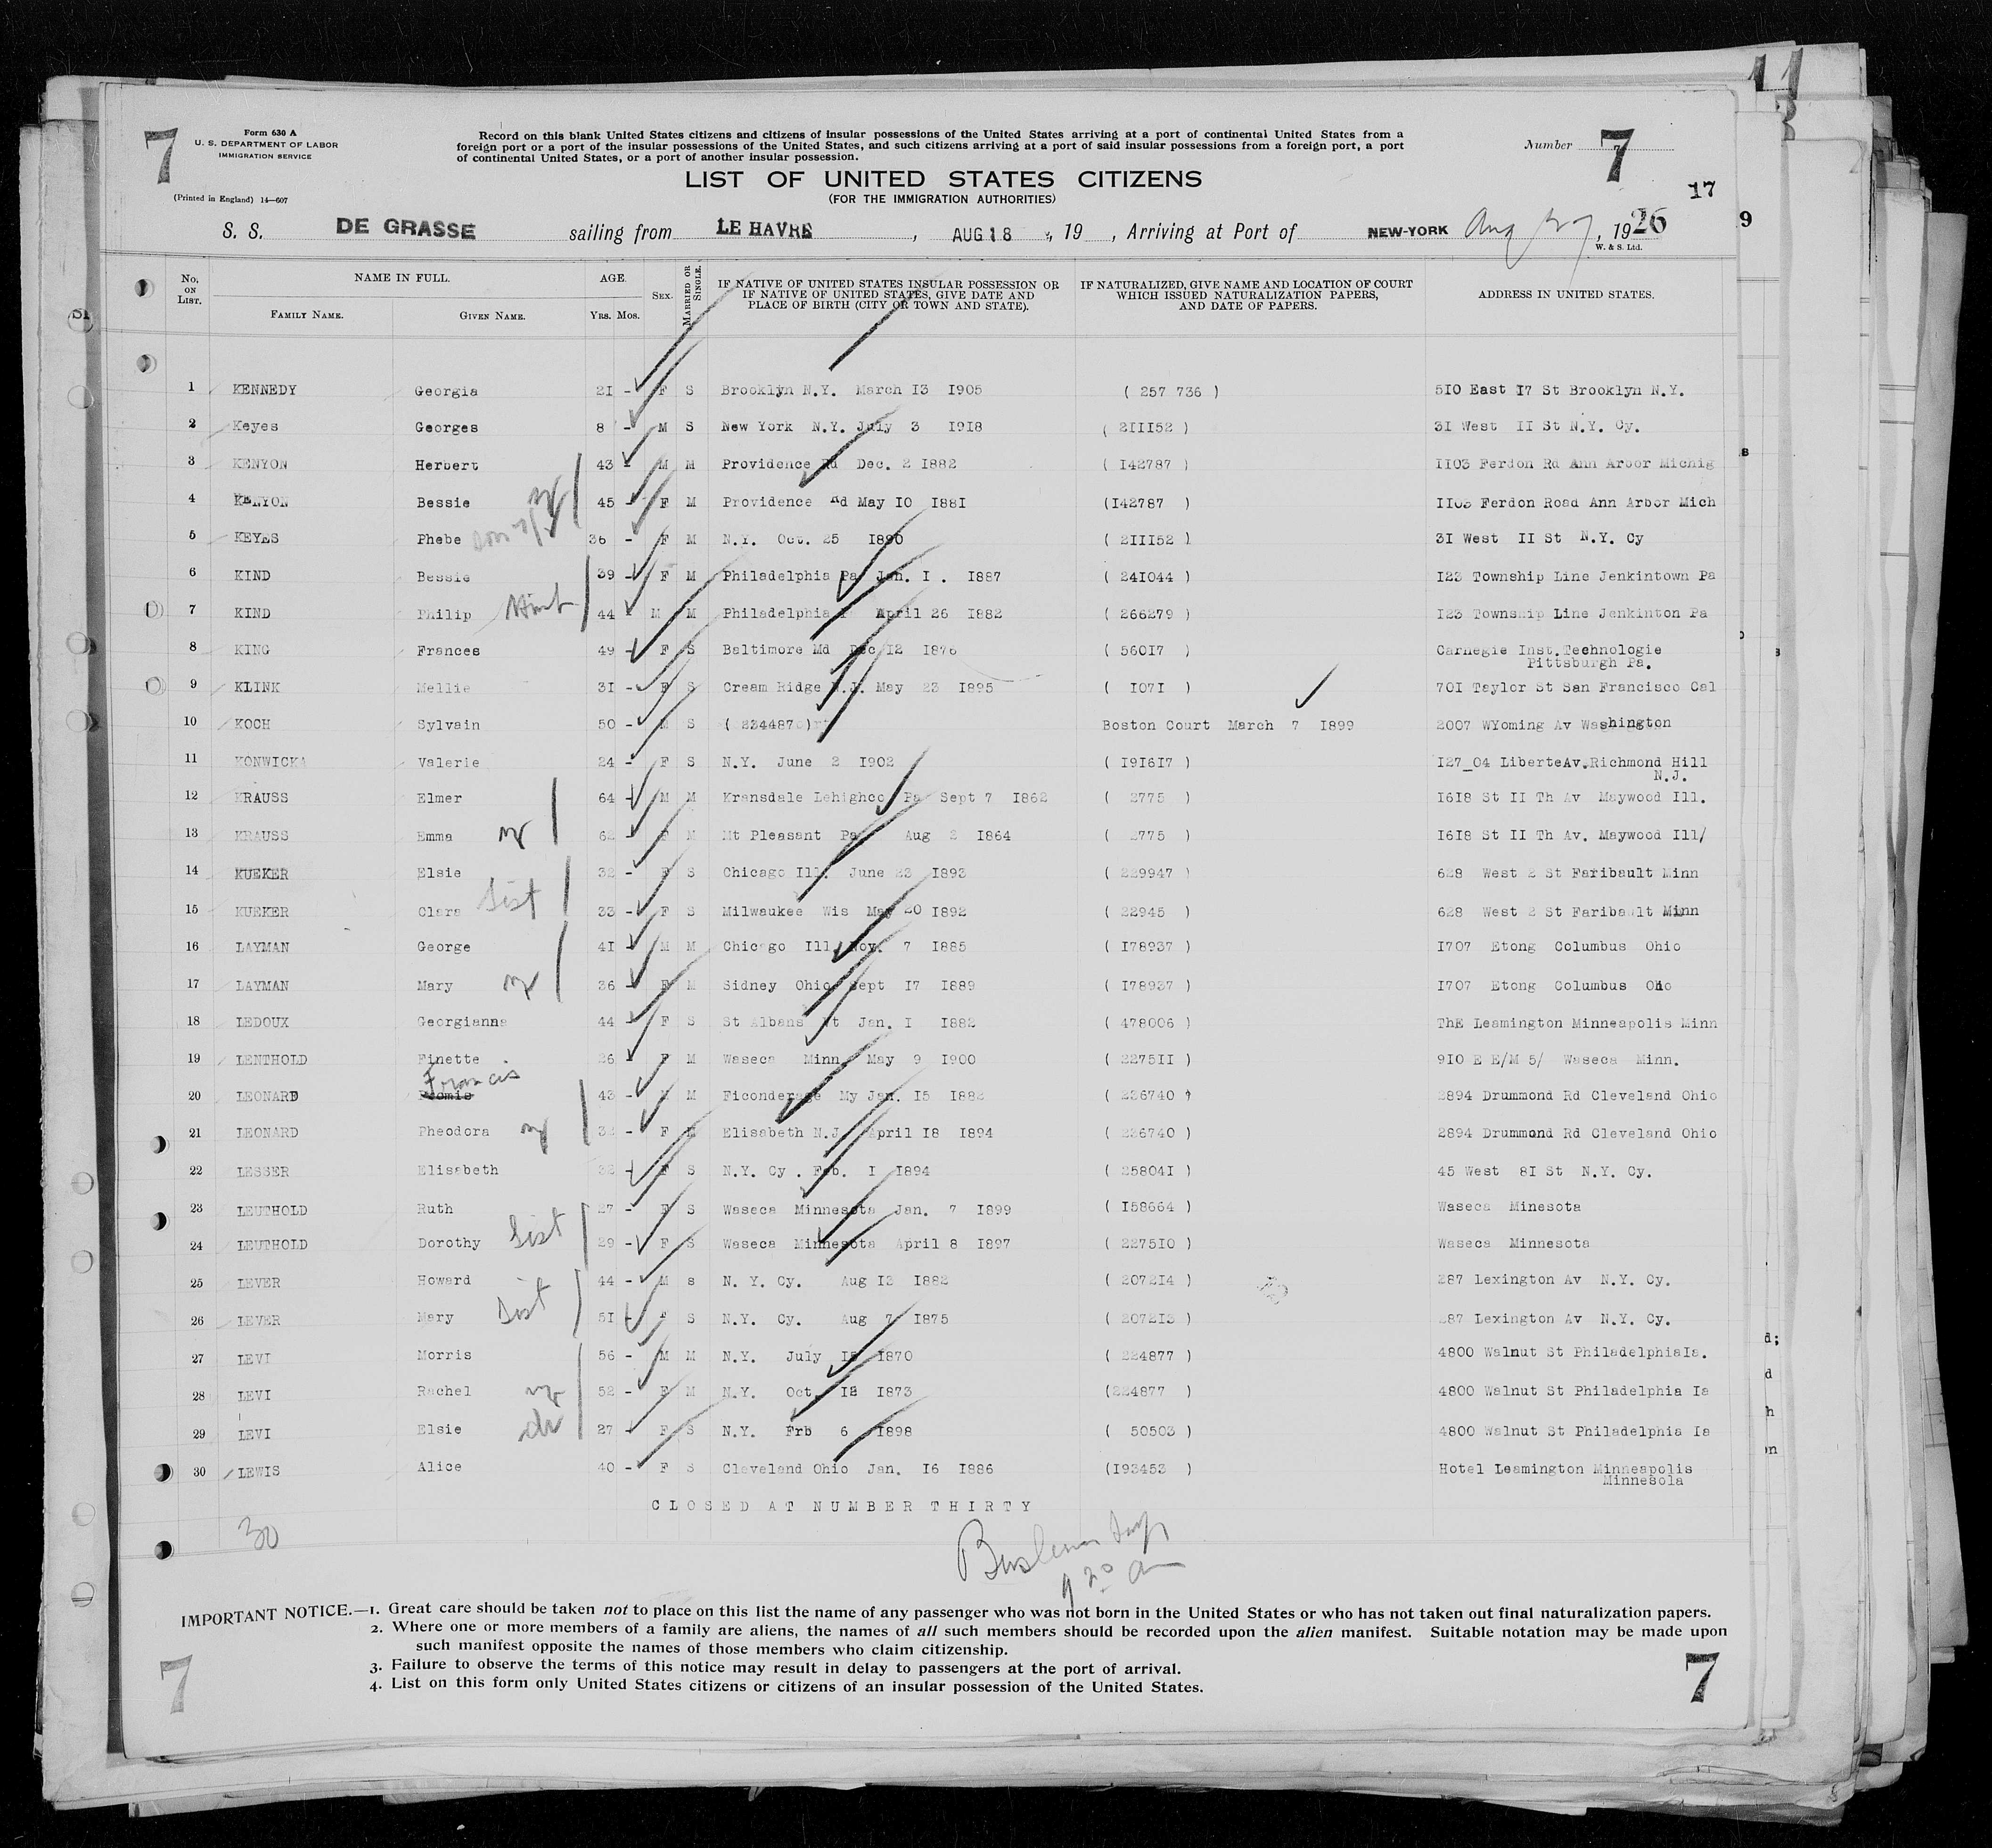 11
7
Form 630 A
U. S. DEPARTMENT OF LABOR
IMMIGRATION SERVICE
(Printed in England) 14—607
Record on this blank United States citizens and citizens of insular possessions of the United States arriving at a port of continental United States from a
foreign port or a port of the insular possessions of the United States, and such citizens arriving at a port of said insular possessions from a foreign port, a port
of continental United States, or a port of another insular possession.
Number 7
17
LIST OF UNITED STATES CITIZENS
(FOR THE IMMIGRATION AUTHORITIES)
S. S. DE GRASSE sailing from LE HAVRE , AUG 18 , 19 , Arriving at Port of NEW-YORK Aug 27, 1926
W. & S. Ltd.
No. ON LIST. NAME IN FULL. AGE. SEX. MARRIED OR SINGLE. IF NATIVE OF UNITED STATES INSULAR POSSESSION OR IF NATIVE OF UNITED STATES, GIVE DATE AND PLACE OF BIRTH (CITY OR TOWN AND STATE). IF NATURALIZED, GIVE NAME AND LOCATION OF COURT WHICH ISSUED NATURALIZATION PAPERS, AND DATE OF PAPERS. ADDRESS IN UNITED STATES.
FAMILY NAME. GIVEN NAME. YRS. MOS.
1 KENNEDY Georgia 2I - F S Brooklyn N.Y. March I3 I905 ( 257 736 ) 5I0 East I7 St Brooklyn N.Y.
2 Keyes Georges 8 - M S New York N.Y. July 3 I9I8 ( 2III52 ) 3I West II St N.Y. Cy.
3 KENYON Herbert 43 - M M Providence Rd Dec. 2 I882 ( I42787 ) II03 Ferdon Rd Ann Arbor Michig
4 KENYON Bessie 45 - F M Providence Rd May I0 I88I (I42787 ) II03 Ferdon Road Ann Arbor Mich
5 KEYES Phebe 36 - F M N.Y. Oct. 25 I890 ( 2III52 ) 3I West II St N.Y. Cy
6 KIND Bessie 39 - F M Philadelphia Pa Jan. I . I887 ( 24I044 ) I23 Township Line Jenkintown Pa
7 KIND Philip 44 - M M Philadelphia P April 26 I882 ( 266279 ) I23 Township Line Jenkinton Pa
8 KING Frances 49 - F S Baltimore Md Dec I2 I876 ( 560I7 ) Carnegie Inst.Technologie
Pittsburgh Pa.
9 KLINK Nellie 3I - F S Cream Ridge N.J. May 23 I895 ( I07I ) 70I Taylor St San Francisco Cal
10 KOCH Sylvain 50 - M S ( 234487 ) Boston Court March 7 I899 2007 WYoming Av Washington
11 KONWICKA Valerie 24 - F S N.Y. June 2 I902 ( I9I6I7 ) I27_04 LiberteAv.Richmond Hill
N.J.
12 KRAUSS Elmer 64 - M M Kransdale Lehighco Pa Sept 7 I862 ( 2775 ) I6I8 St II Th Av Maywood Ill.
13 KRAUSS Emma 62 - F M Mt Pleasant Pa Aug 2 I864 ( 2775 ) I6I8 St II Th Av. Maywood Ill/
14 KUEKER Elsie 32 - F S Chicago Ill. June 23 I893 ( 229947 ) 628 West 2 St Faribault Minn
15 KUEKER Clara Sist 33 - F S Milwaukee Wis May 20 I892 ( 22945 ) 628 West 2 St Faribault Minn
16 LAYMAN George 4I - M M Chicago Ill Nov. 7 I885 ( I78937 ) I707 Etong Columbus Ohio
17 LAYMAN Mary 36 - F M Sidney Ohio Sept I7 I889 ( I78937 ) I707 Etong Columbus Ohio
18 LEDOUX Georgianna 44 - F S St Albans Vt Jan. I I882 ( 478006 ) ThE Leamington Minneapolis Minn
19 LENTHOLD Finette 26 - F M Waseca Minn May 9 I900 ( 2275II ) 9I0 E E/M 5/ Waseca Minn.
Francis
20 LEONARD 43 - M M Ficonderage My Jan. I5 I882 ( 236740 ) 2894 Drummond Rd Cleveland Ohio
21 LEONARD Pheodora 32 - F M Elisabeth N.J. April I8 I894 ( 236740 ) 2894 Drummond Rd Cleveland Ohio
22 LESSER Elisabeth 32 - F S N.Y. Cy . Feb. I I894 ( 25804I ) 45 West 8I St N.Y. Cy.
23 LEUTHOLD Ruth 27 - F S Waseca Minnesota Jan. 7 I899 ( I58664 ) Waseca Minesota
24 LEUTHOLD Dorothy Sist 29 - F S Waseca Minnesota April 8 I897 ( 2275I0 ) Waseca Minnesota
25 LEVER Howard 44 - M s N. Y. Cy. Aug I3 I882 ( 2072I4 ) 287 Lexington Av N.Y. Cy.
26 LEVER Mary Sist 5I - F S N.Y. Cy. Aug 7 I875 ( 2072I3 ) 287 Lexington Av N.Y. Cy.
27 LEVI Morris 56 - M M N.Y. July I8 I870 ( 224877 ) 4800 Walnut St PhiladelphiaIa.
28 LEVI Rachel 52 - F M N.Y. Oct. I2 I873 (224877 ) 4800 Walnut St Philadelphia Ia
29 LEVI Elsie 27 - F S N.Y. Frb 6 I898 ( 50503 ) 4800 Walnut St Philadelphia Ia
30 LEWIS Alice 40 - F S Cleveland Ohio Jan. I6 I886 (I93453 ) Hotel Leamington Minneapolis
Minnesola
CLOSED AT NUMBER THIRTY
30
9 20 am
IMPORTANT NOTICE.—1. Great care should be taken not to place on this list the name of any passenger who was not born in the United States or who has not taken out final naturalization papers.
2. Where one or more members of a family are aliens, the names of all such members should be recorded upon the alien manifest. Suitable notation may be made upon
such manifest opposite the names of those members who claim citizenship.
3. Failure to observe the terms of this notice may result in delay to passengers at the port of arrival.
4. List on this form only United States citizens or citizens of an insular possession of the United States.
7
7